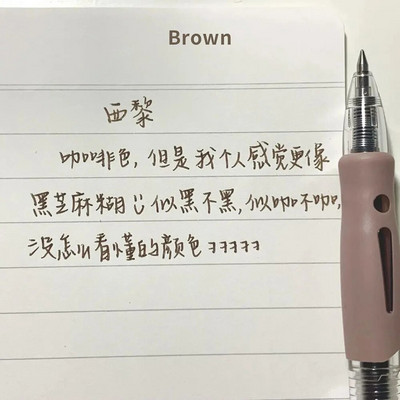 Brown
西黎
咖啡色，但是我个人感觉更像
黑芝麻糊ü似黑不黑，似咖不咖，
没怎么看懂的颜色ヨヨヨヨヨ